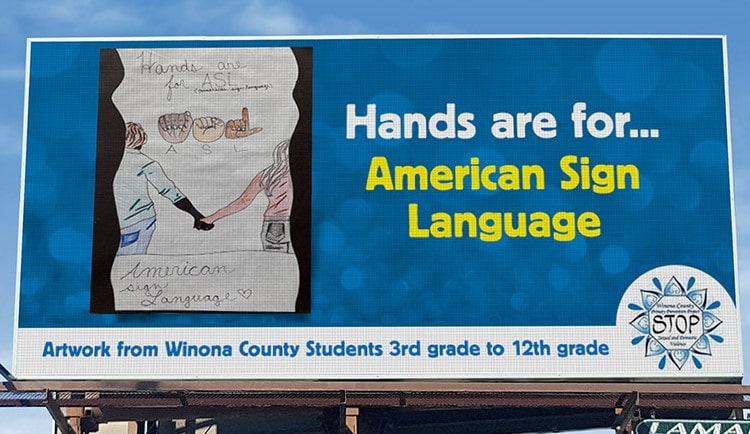 Hands are
for ASL
(American sign language)
A S L
American
sign
Language
Hands are for...
American Sign
Language
Artwork from Winona County Students 3rd grade to 12th grade
Winona County
Primary Prevention Project
STOP
Sexual and Domestic
Violence
LAMA